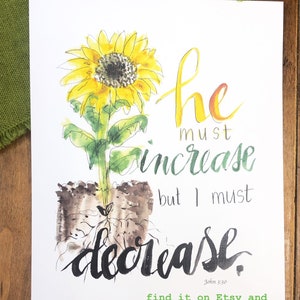 he
must
increase
but I must
decrease.
John 3:30
find it on Etsy and